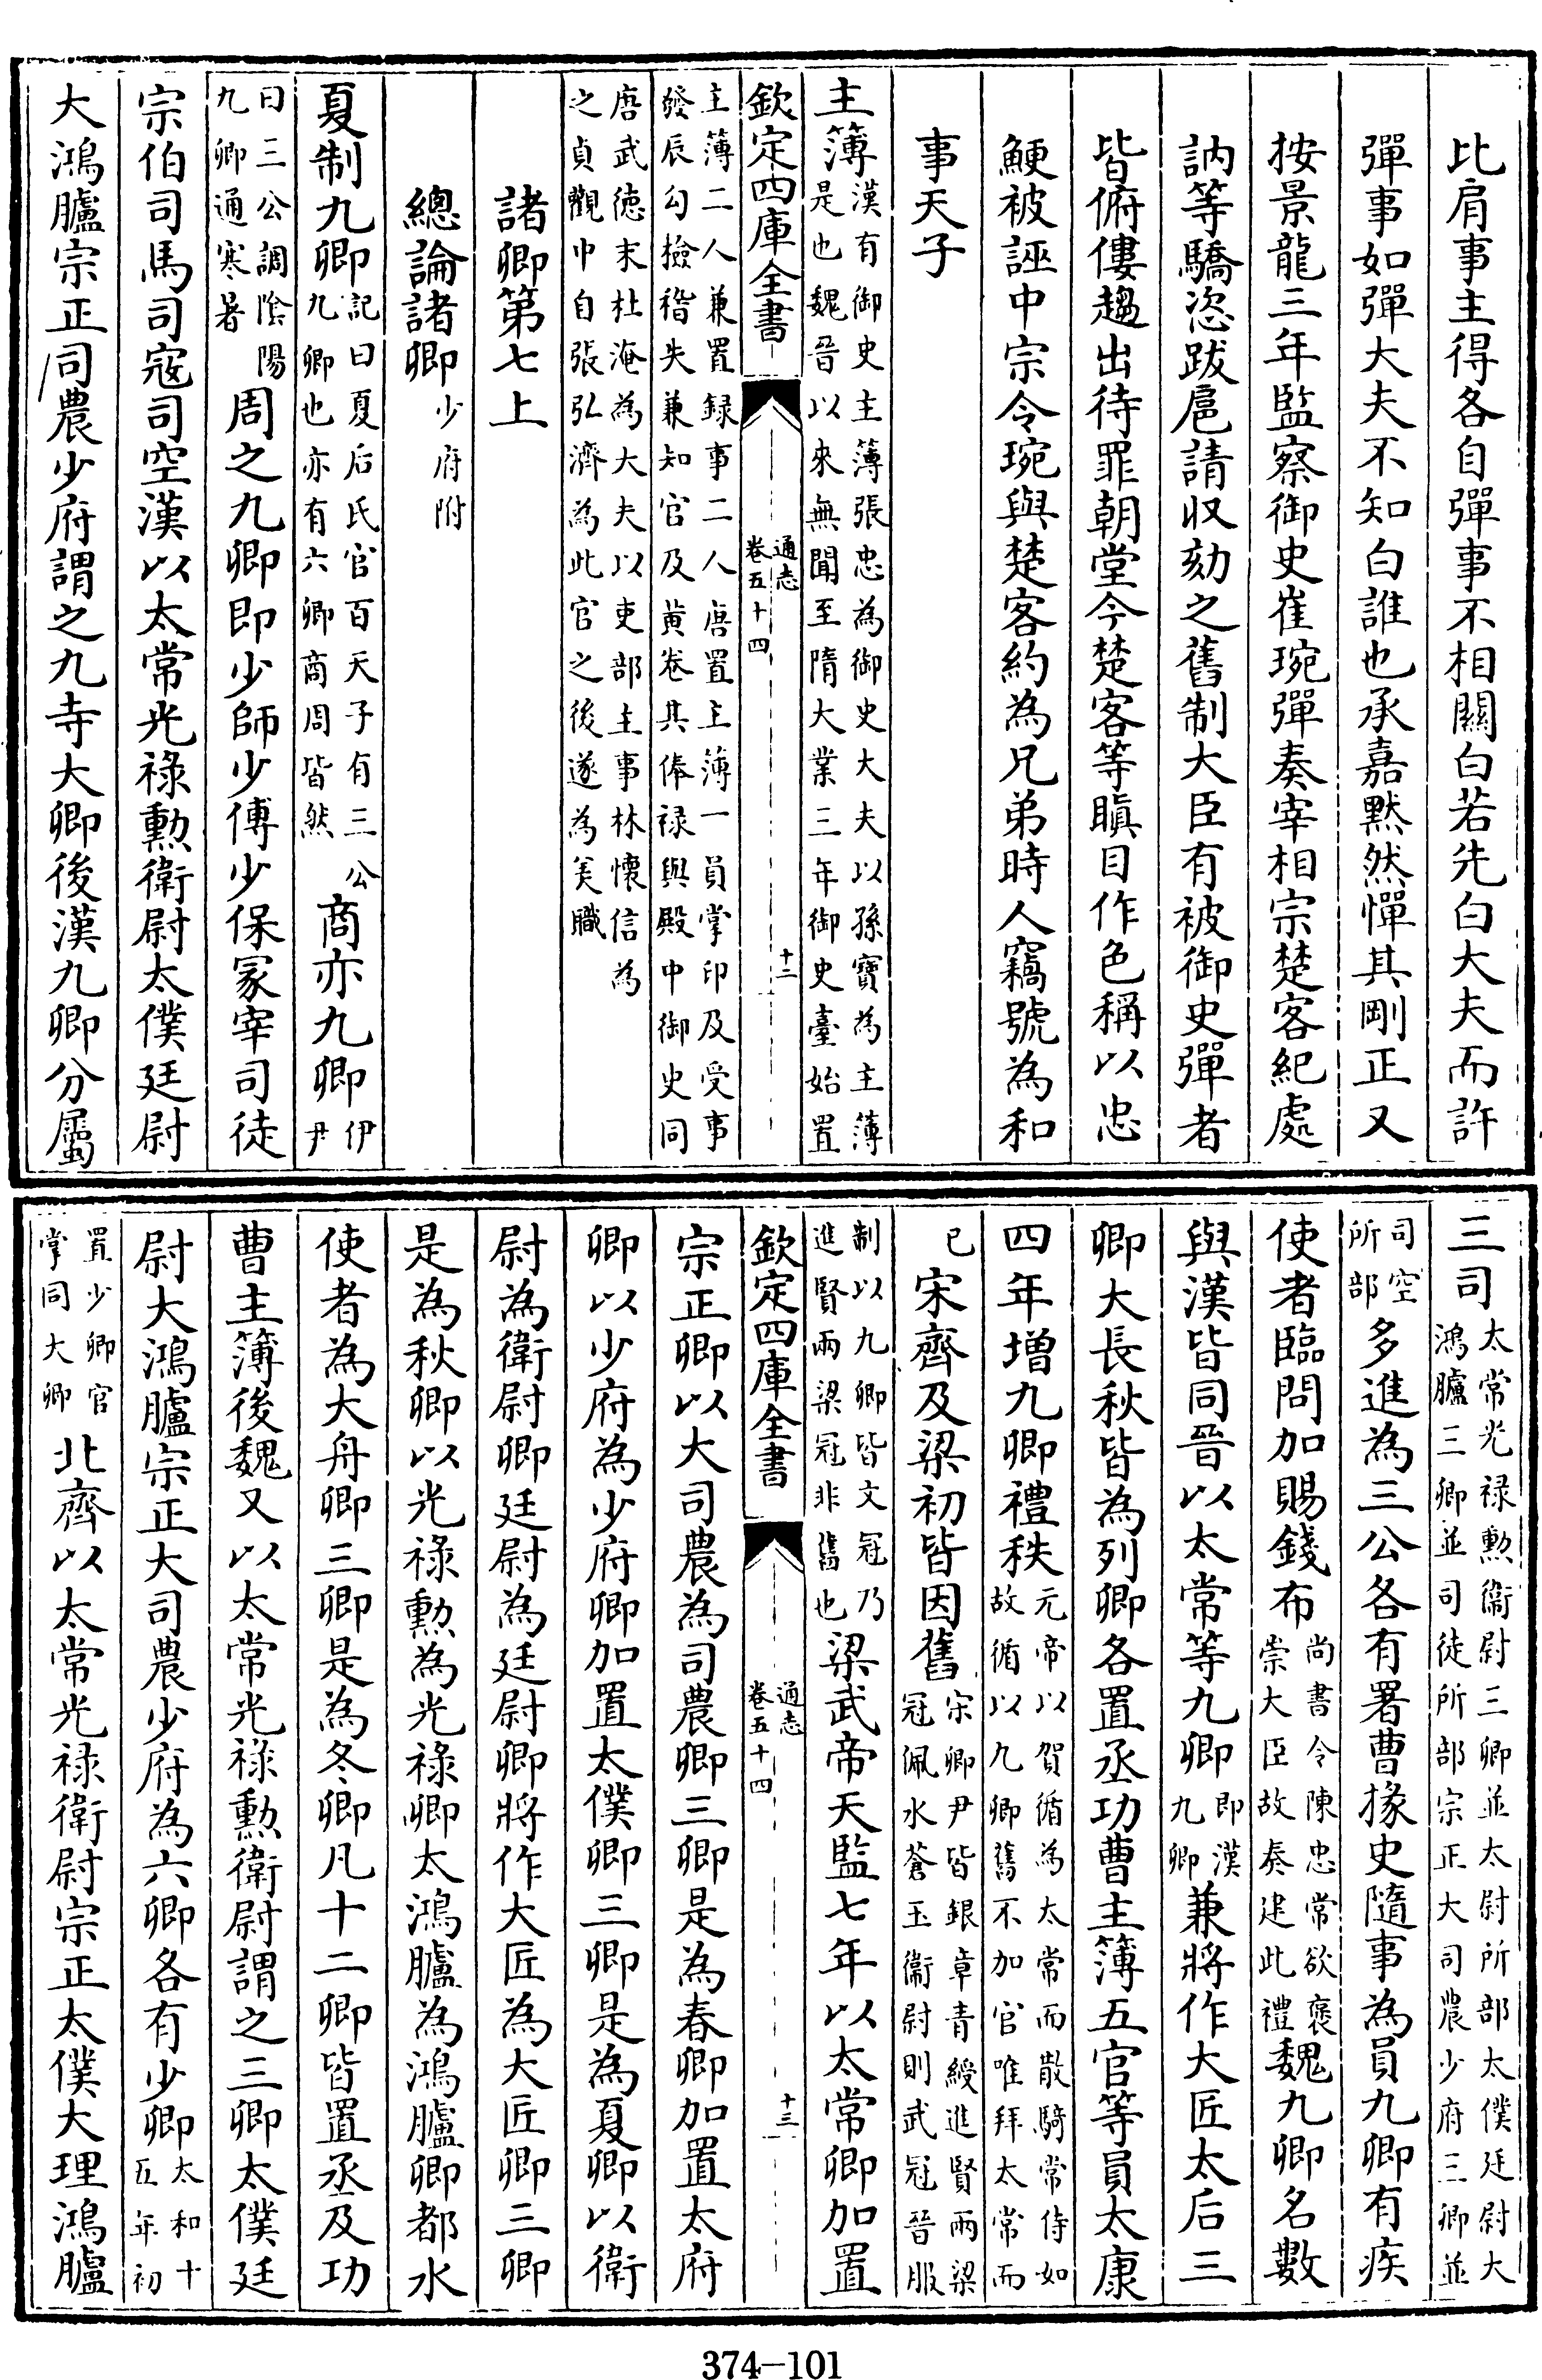 比肩事主得各自彈事不相關白若先白大夫而許
彈事如彈大夫不知白誰也承嘉默然憚其剛正又
按景龍三年監察御史崔琬彈奏宰相宗楚客紀處
訥等驕恣跋扈請収劾之舊制大臣有被御史彈者
皆俯僂趨出待罪朝堂今楚客等瞋目作色稱以忠
鯁被誣中宗令琬與楚客約為兄弟時人竊號為和
事天子
主簿漢有御史主簿張忠為御史大夫以孫寶為主簿
是也魏晉以來無聞至隋大業三年御史臺始置
欽定四庫全書
通志
卷五十四
十二
主薄二人兼置録事二人唐置主薄一員掌印及受事
發辰勾檢稽失兼知官及黄卷其俸禄與殿中御史同
唐武徳末杜淹為大夫以吏部主事林懷信為
之貞觀中自張弘濟為此官之後遂為美職
諸卿第七上
總論諸卿少府附
夏制九卿記曰夏后氏官百天子有三公
九卿也亦有六卿商周皆然商亦九卿伊
尹
曰三公調陰陽
九卿通寒暑周之九卿即少師少傅少保冢宰司徒
宗伯司馬司寇司空漢以太常光祿勲衛尉太僕廷尉
大鴻臚宗正司農少府謂之九寺大卿後漢九卿分屬
三司太常光禄勲衞尉三卿並太尉所部太僕廷尉大
鴻臚三卿並司徒所部宗正大司農少府三卿並
司空
所部多進為三公各有署曹掾史隨事為員九卿有疾
使者臨問加賜錢布尚書令陳忠常欲褒
崇大臣故奏建此禮魏九卿名數
與漢皆同晉以太常等九卿即漢
九卿兼將作大匠太后三
卿大長秋皆為列卿各置丞功曹主簿五官等員太康
四年增九卿禮秩元帝以賀循為太常而散騎常侍如
故循以九卿舊不加官唯拜太常而
已宋齊及梁初皆因舊宋卿尹皆銀章青綬進賢兩梁
冠佩水蒼玉衞尉則武冠晉服
制以九卿皆文冠乃
進賢兩梁冠非舊也梁武帝天監七年以太常卿加置
欽定四庫全書
通志
卷五十四
十三
宗正卿以大司農為司農卿三卿是為春卿加置太府
卿以少府為少府卿加置太僕卿三卿是為夏卿以衛
尉為衛尉卿廷尉為廷尉卿將作大匠為大匠卿三卿
是為秋卿以光祿勲為光祿卿太鴻臚為鴻臚卿都水
使者為大舟卿三卿是為冬卿凡十二卿皆置丞及功
曹主簿後魏又以太常光禄勲衛尉謂之三卿太僕廷
尉大鴻臚宗正大司農少府為六卿各有少卿太和十
五年初
置少卿官
掌同大卿北齊以太常光禄衛尉宗正太僕大理鴻臚
374-101